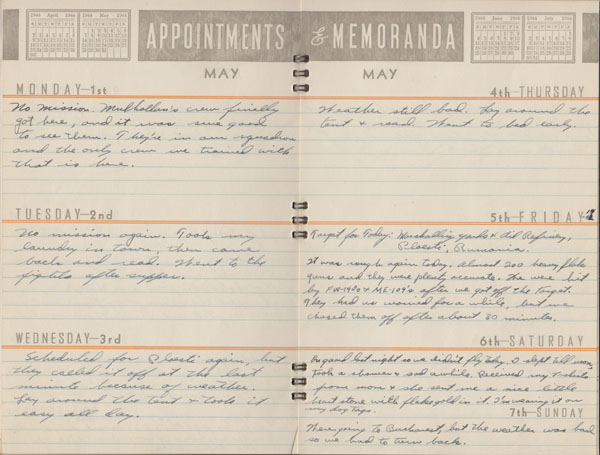 1944 April 1944
1944 May 1944
APPOINTMENTS & MEMORANDA
1944 June 1944
1944 July 1944
MAY
MONDAY—1st
No mission. Mulhollan's crew finally
got here, and it was sure good
to see them. They're in our squadron
and the only crew we trained with
that is here.
TUESDAY—2nd
No mission again. Took my
laundry in town, then came
back and read. Went to the
after supper.
WEDNESDAY—3rd
Scheduled for Ploesti again, but
they called it off at the last
minute because of weather.
Lay around the tent & took it
easy all day.
MAY
4th—THURSDAY
Weather still bad. Lay around the
tent & read. Went to bed early.
5th—FRIDAY
Target for Today: Marshalling yards & Oil Refinery,
Ploesti, Rumania.
It was rough again today. Almost 200 heavy flak
guns and they were plenty accurate. We were hit
by FW-190s & ME-109's after we got off the Target.
They had us worried for a while, but we
chased them off after about 30 minutes.
6th—SATURDAY
On guard last night so we didn't fly today. I slept till noon,
took a shower & sod awhile. Received my T-shirts
from mom & she sent me a nice little
stone with flake gold in it. I'm wearing it on
my dog tags.
7th—SUNDAY
Were going to Bucharest, but the weather was bad
so we had to turn back.